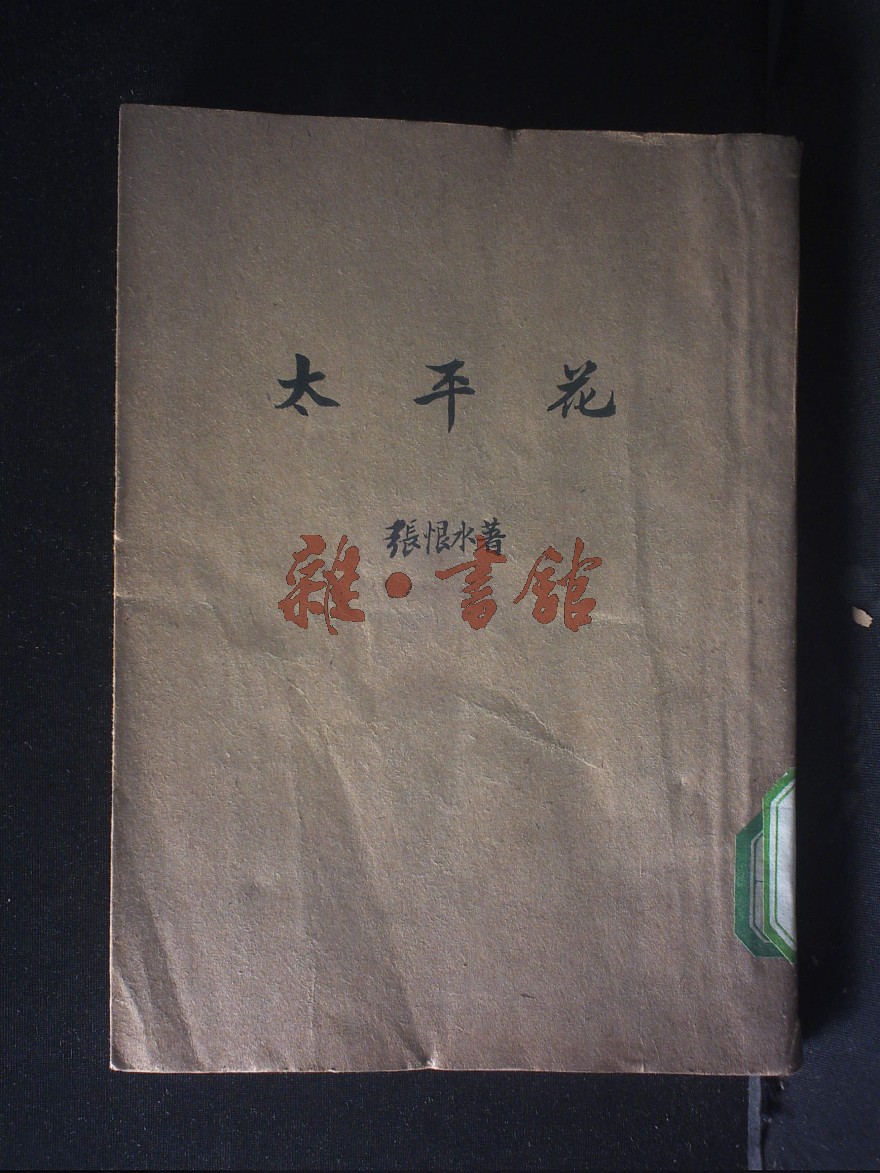 太平花
張恨水著
雜·書館